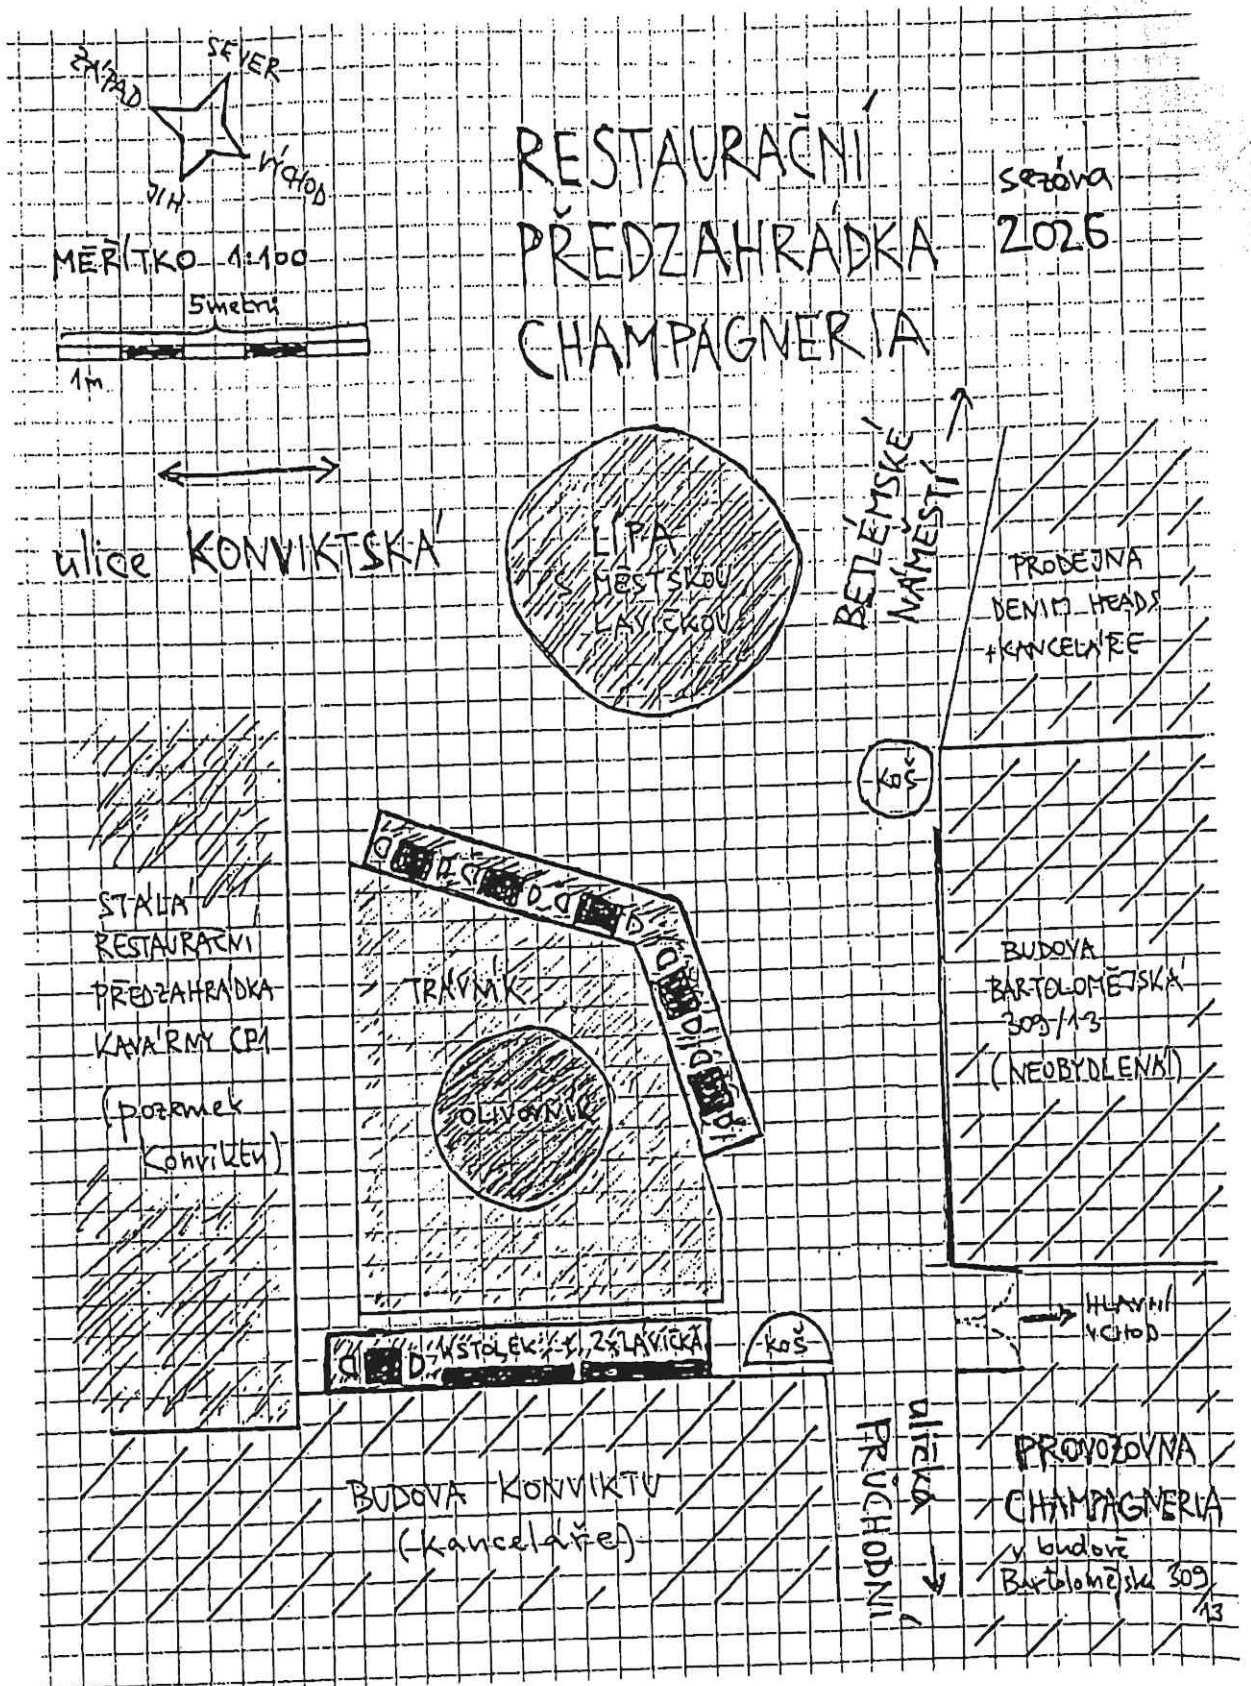 SEVER
ZÁPAD
VÝCHOD
JIH
MĚŘÍTKO 1:100
5 metrů
1m
RESTAURAČNÍ
PŘEDZAHRÁDKA
CHAMPAGNERIA
sezóna
2026
ulice KONVIKTSKÁ
LÍPA
S MĚSTSKOU
LAVIČKOU
BETLÉMSKÉ
NÁMĚSTÍ
PRODEJNA
DENIM HEADS
+KANCELÁŘE
KOŠ
STÁLÁ
RESTAURAČNÍ
PŘEDZAHRÁDKA
KAVÁRNY CP1
(pozemek
Konviktu)
TRÁVNÍK
OLIVOVNÍK
BUDOVA
BARTOLOMĚJSKÁ
309/13
(NEOBYDLENÁ)
HLAVNÍ
VCHOD
KOŠ
BUDOVA KONVIKTU
(kanceláře)
ulička
PRŮCHODNÍ
PROVOZOVNA
CHAMPAGNERIA
v budově
Bartolomějská 309
13